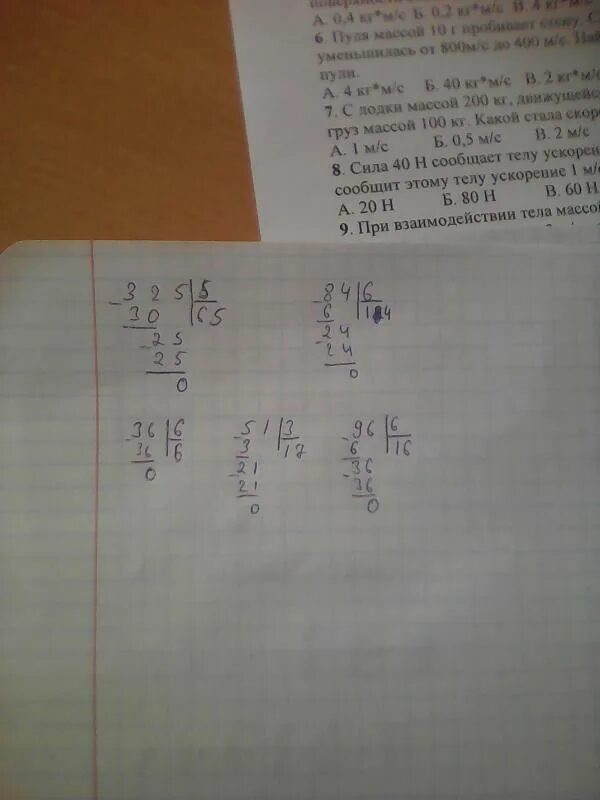 А. 0,4 кг*м/с Б. 0,2 кг*м/с В. 4 кг*м/с
6. Пуля массой 10 г пробивает стену. С
уменьшилась от 800м/с до 400 м/с. Най
пули.
А. 4 кг*м/с Б. 40 кг*м/с В. 2 кг*м/с
7. С лодки массой 200 кг, движущейс
груз массой 100 кг. Какой стала скоро
А. 1 м/с Б. 0,5 м/с В. 2 м/с
8. Сила 40 Н сообщает телу ускорен
сообщит этому телу ускорение 1 м/с
А. 20 Н Б. 80 Н В. 60 Н
9. При взаимодействии тела массой
-325|5
30 |65
-25
25
0
-84|6
6 |14
-24
24
0
-36|6
36|6
0
-51|3
3 |17
-21
21
0
-96|6
6 |16
-36
36
0